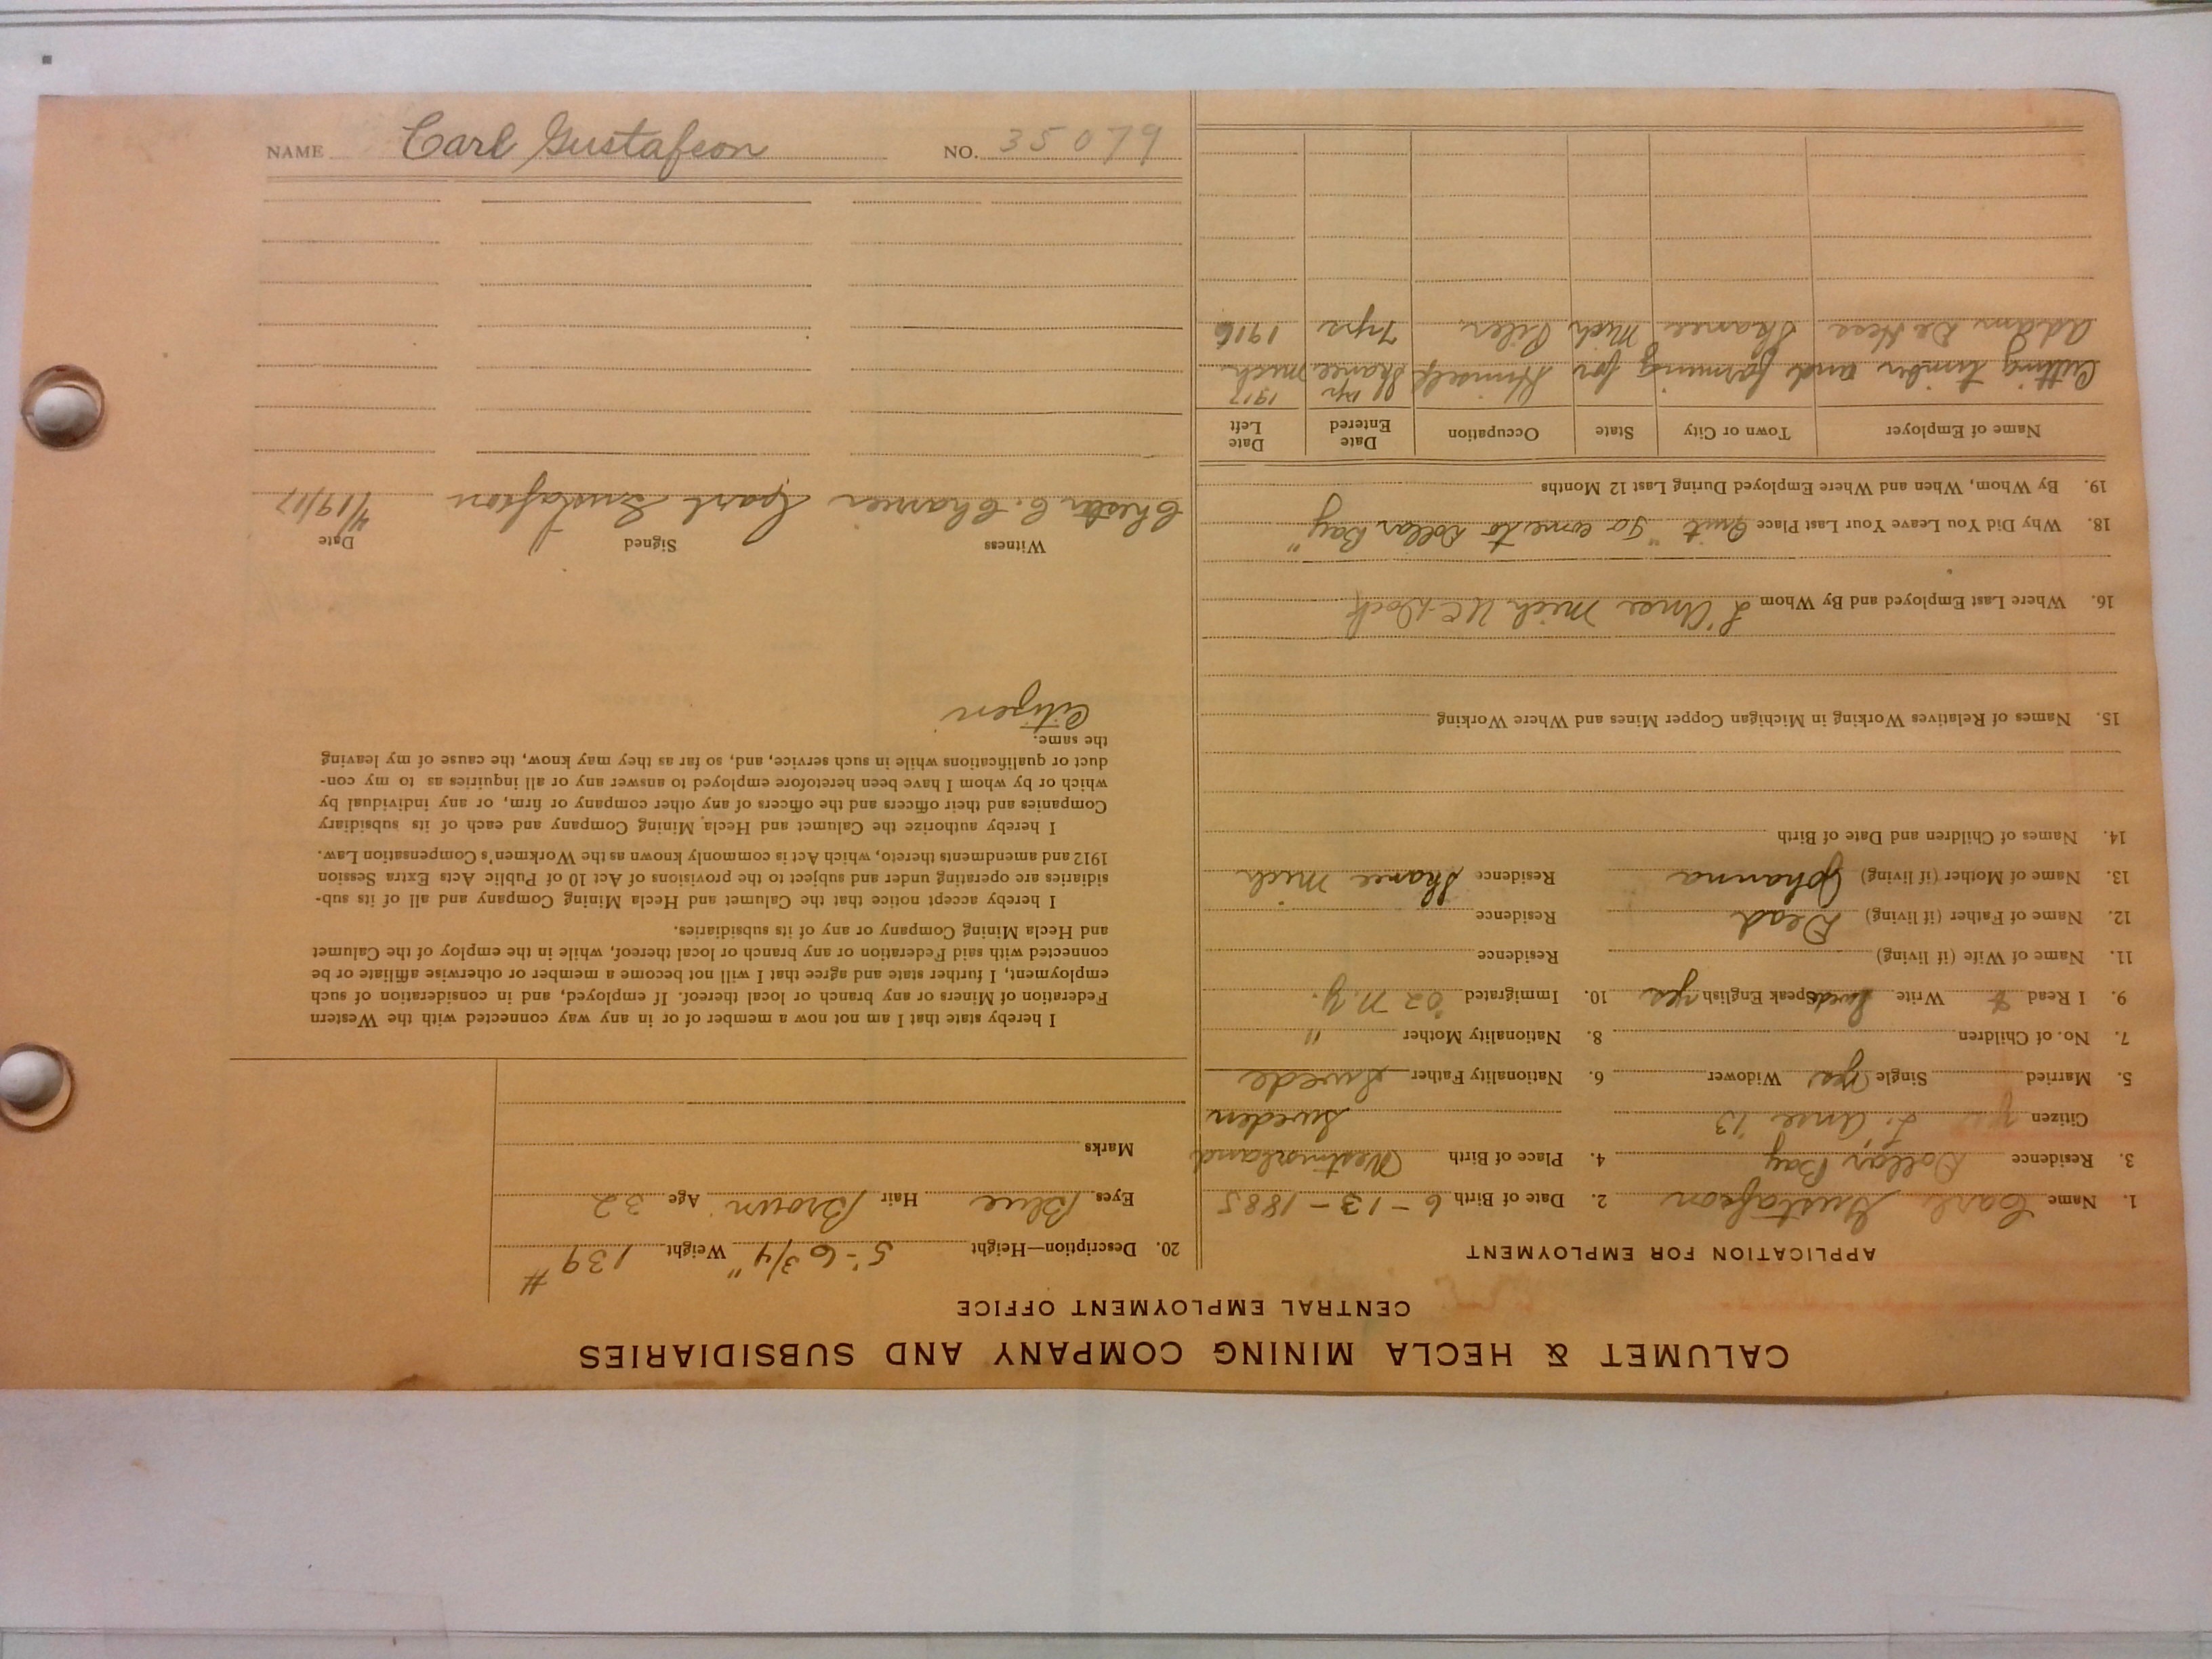 NAME Carl Gustafson NO. 35079
CALUMET & HECLA MINING COMPANY AND SUBSIDIARIES
CENTRAL EMPLOYMENT OFFICE
APPLICATION FOR EMPLOYMENT
1. Name Carl Gustafson 2. Date of Birth 6-13-1885
3. Residence Dollar Bay 4. Place of Birth Westmorland
Citizen yes L'Anse '13 Sweden
5. Married Single yes Widower 6. Nationality Father Swede
7. No. of Children 8. Nationality Mother "
9. I Read & Write Swede Speak English yes 10. Immigrated '02 N.Y.
11. Name of Wife (if living) Residence
12. Name of Father (if living) Dead Residence
13. Name of Mother (if living) Johanna Residence Skanee Mich
14. Names of Children and Date of Birth
15. Names of Relatives Working in Michigan Copper Mines and Where Working
16. Where Last Employed and By Whom L'Anse Mich Dock
18. Why Did You Leave Your Last Place Quit "To come to Dollar Bay"
19. By Whom, When and Where Employed During Last 12 Months
Name of Employer Town or City State Occupation Date Entered Date Left
1917
Cutting timber and farming for Himself Skanee Mich
Adams De Hess Skanee Mich Piler 7 yrs 1916
20. Description—Height 5'-6 3/4" Weight 139 #
Eyes Blue Hair Brown Age 32
Marks
I hereby state that I am not now a member of or in any way connected with the Western
Federation of Miners or any branch or local thereof. If employed, and in consideration of such
employment, I further state and agree that I will not become a member or otherwise affiliate or be
connected with said Federation or any branch or local thereof, while in the employ of the Calumet
and Hecla Mining Company or any of its subsidiaries.
I hereby accept notice that the Calumet and Hecla Mining Company and all of its sub-
sidiaries are operating under and subject to the provisions of Act 10 of Public Acts Extra Session
1912 and amendments thereto, which Act is commonly known as the Workmen's Compensation Law.
I hereby authorize the Calumet and Hecla Mining Company and each of its subsidiary
Companies and their officers and the officers of any other company or firm, or any individual by
which or by whom I have been heretofore employed to answer any or all inquiries as to my con-
duct or qualifications while in such service, and, so far as they may know, the cause of my leaving
the same.
Citizen
Witness Signed Date
Chester C. Charrier Carl Gustafson 4/19/17